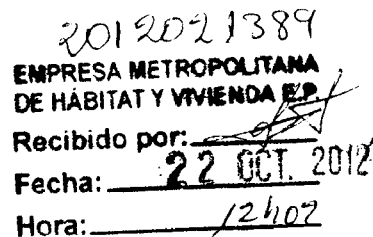 2012021389
EMPRESA METROPOLITANA
DE HÁBITAT Y VIVIENDA E.P.
Recibido por:
Fecha: 22 OCT. 2012
Hora: 12h02